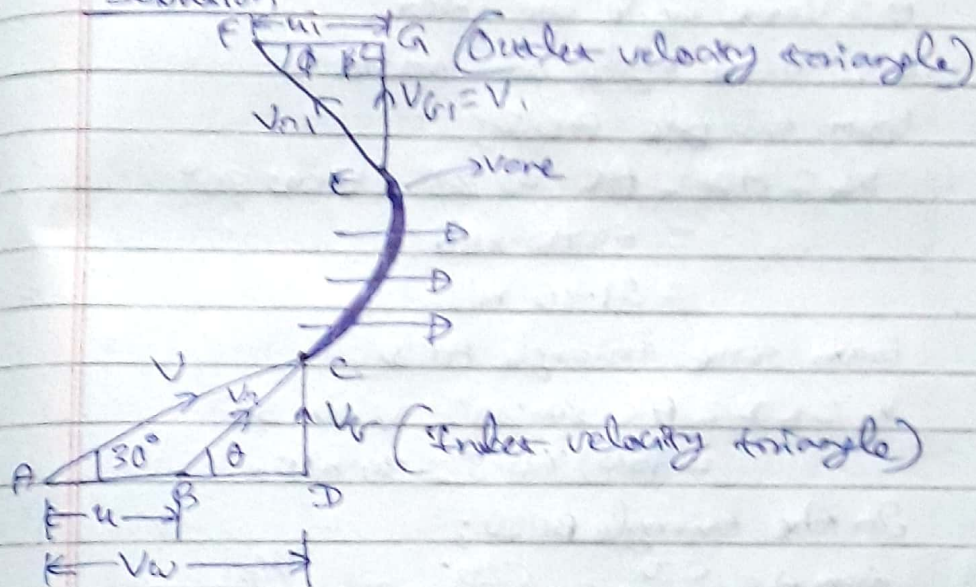 F u₁ G (Outlet velocity triangle)
φ β
Vr₁ VG₁ = V₁
E → vane
D
D
D
V C
Vr Vf (Inlet velocity triangle)
A 30° θ
B D
u
Vw